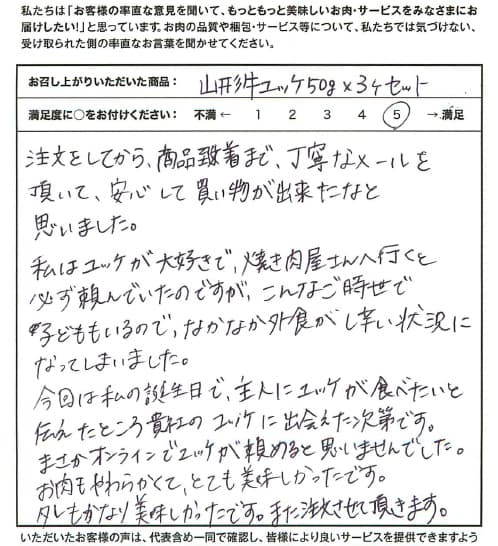 私たちは「お客様の率直な意見を聞いて、もっともっと美味しいお肉・サービスをみなさまにお
届けしたい!」と思っています。お肉の品質や梱包・サービス等について、私たちでは気づけない、
受け取られた側の率直なお言葉を聞かせてください。
お召し上がりいただいた商品： 山形牛ユッケ50g×3ヶセット
満足度に○をお付けください： 不満 ← 1 2 3 4 5 → 満足
注文をしてから、商品到着まで、丁寧なメールを
頂いて、安心して買い物が出来たなと
思いました。
私はユッケが大好きで、焼き肉屋さんへ行くと
必ず頼んでいたのですが、こんなご時世で
子どももいるので、なかなか外食がし辛い状況に
なってしまいました。
今回は私の誕生日で、主人にユッケが食べたいと
伝えたところ貴社のユッケに出会えた次第です。
まさかオンラインでユッケが頼めると思いませんでした。
お肉もやわらかくて、とても美味しかったです。
タレもかなり美味しかったです。また注文させて頂きます。
いただいたお客様の声は、代表含め一同で確認し、皆様により良いサービスを提供できますよう